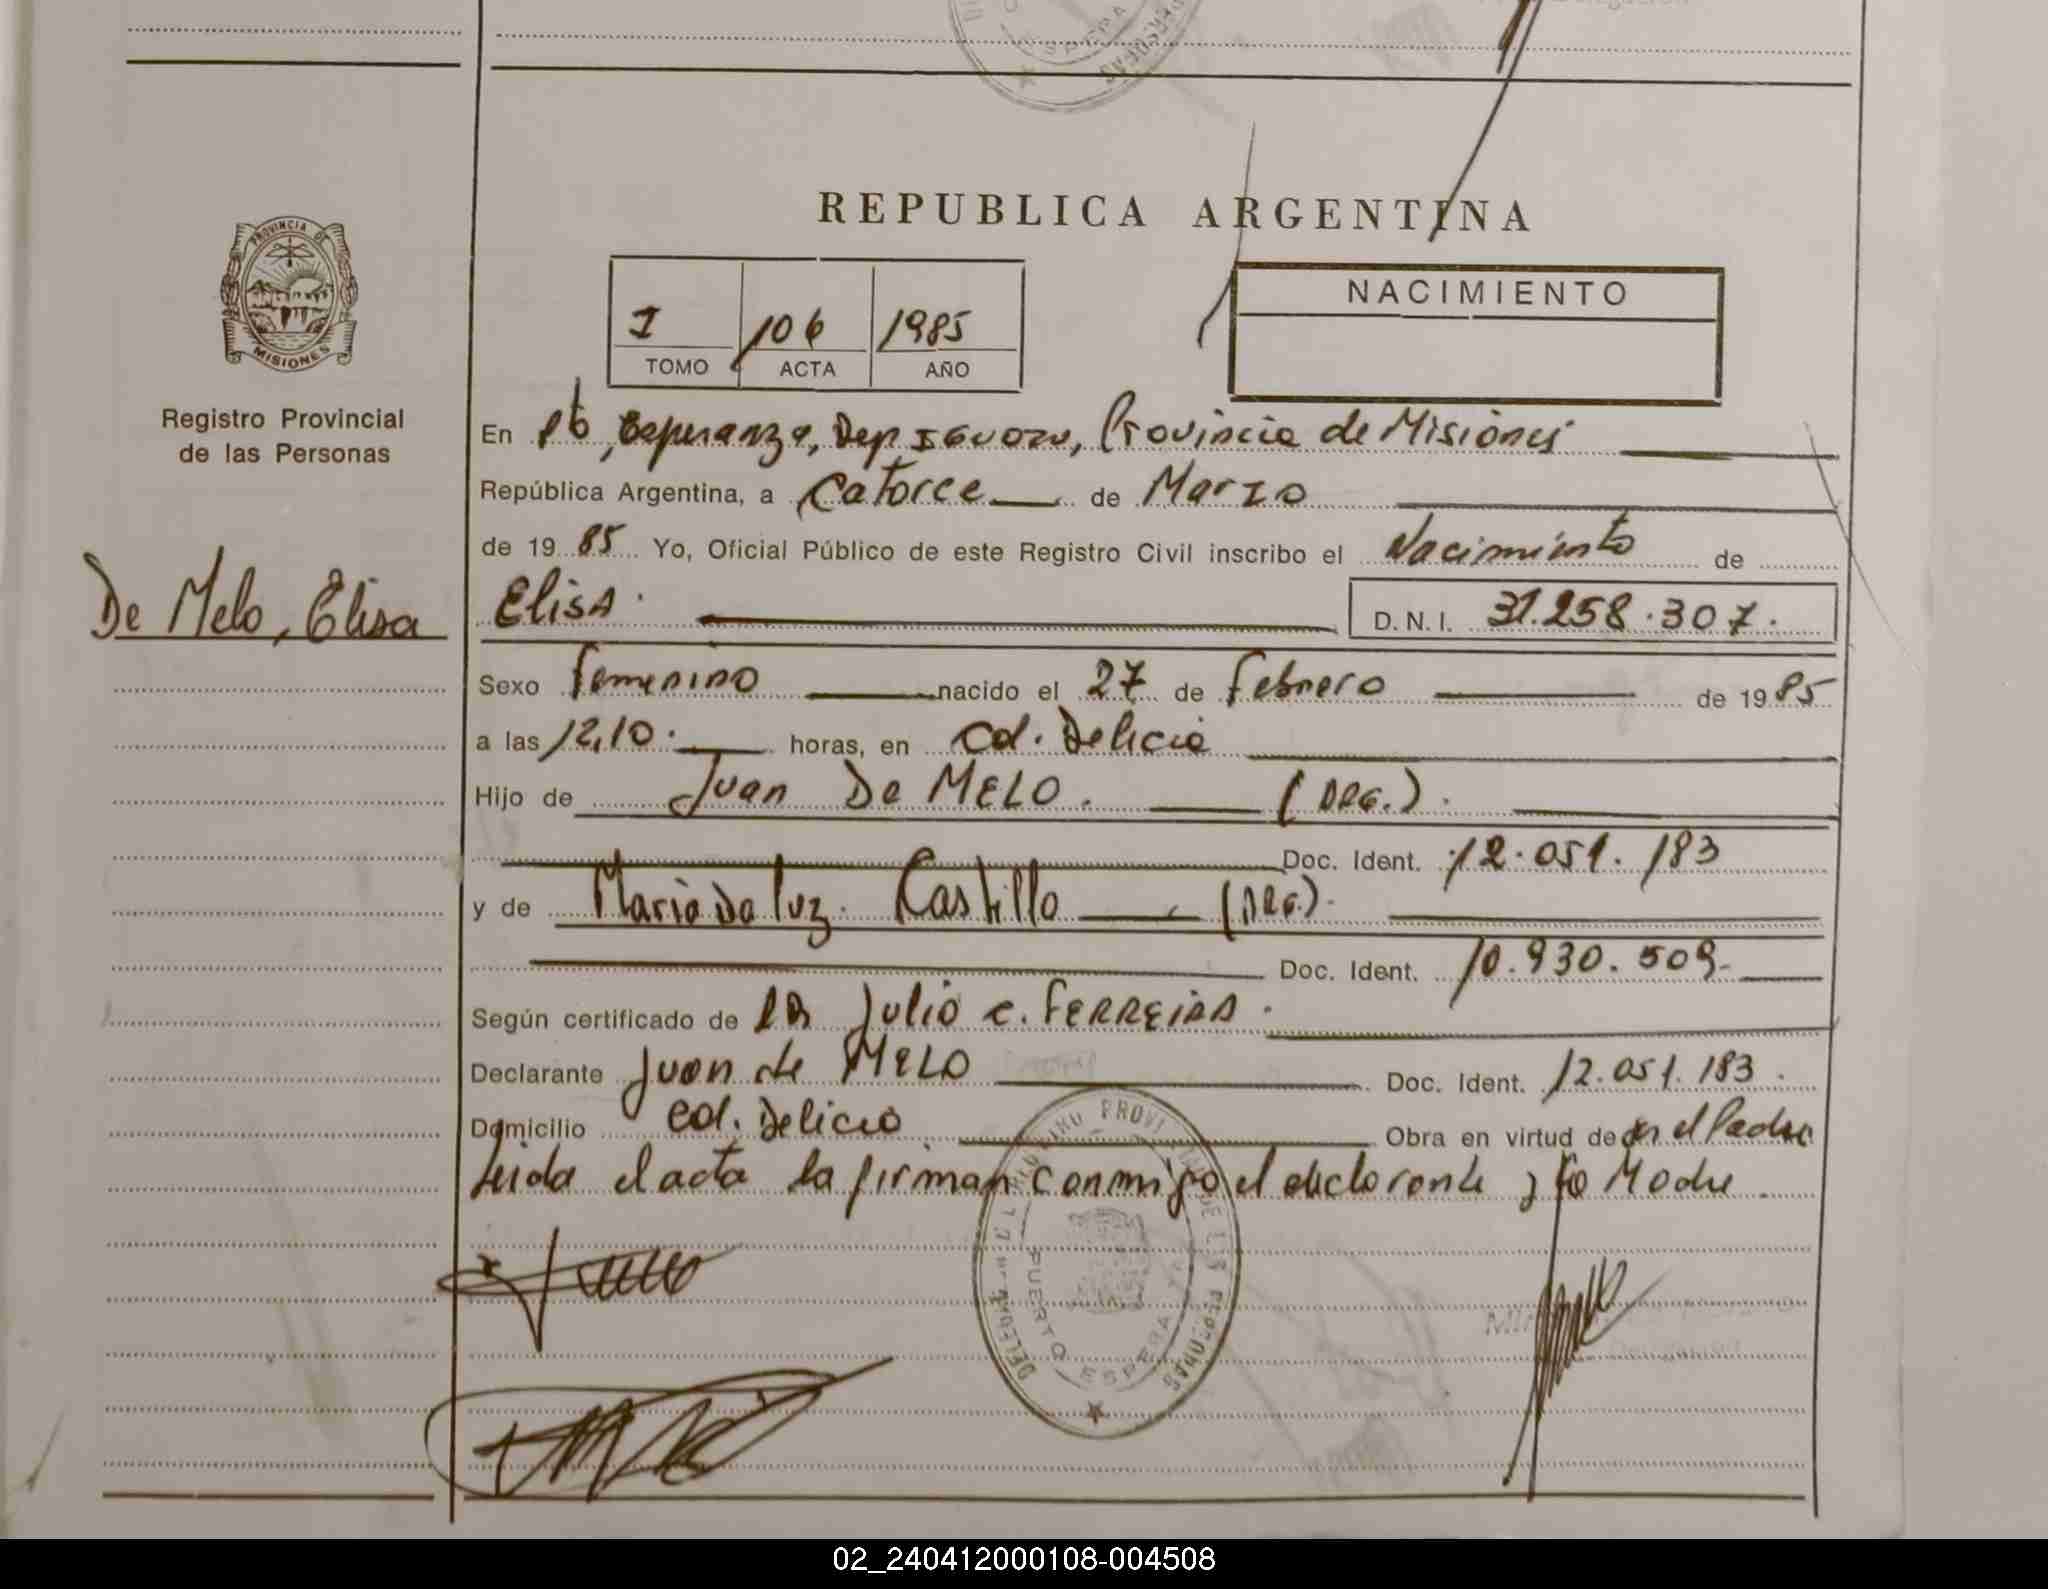 REPUBLICA ARGENTINA
PROVINCIA DE
MISIONES
Registro Provincial
de las Personas
De Melo, Elisa
I 106 1985
TOMO ACTA AÑO
NACIMIENTO
En Pto, Esperanza, Dep Iguazu, Provincia de Misiones
República Argentina, a Catorce de Marzo
de 19 85 Yo, Oficial Público de este Registro Civil inscribo el Nacimiento de
Elisa. D.N.I. 31.258.307.
Sexo Femenino nacido el 27 de Febrero de 19 85
a las 12,10. horas, en Col. Delicia
Hijo de Juan De MELO. (ARG.).
Doc. Ident. 12.051.183
y de Maria Da luz. Castillo (ARG.).
Doc. Ident. 10.930.509.
Según certificado de Julio C. FERREIRA.
Declarante Juan de MELO Doc. Ident. 12.051.183.
Domicilio Col. Delicia Obra en virtud de ser el Padre
Leida el acta la firman conmigo el declarante y la Madre
PUERTO ESPERANZA
02_240412000108-004508